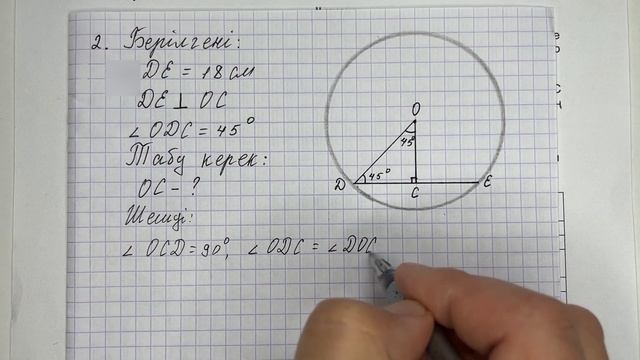 2. Берілгені:
DE = 18 см
DE ⊥ OC
∠ ODC = 45°
Табу керек:
OC - ?
Шешуі:
∠ OCD = 90°, ∠ ODC = ∠ DOC
O
45°
45°
D
C
E